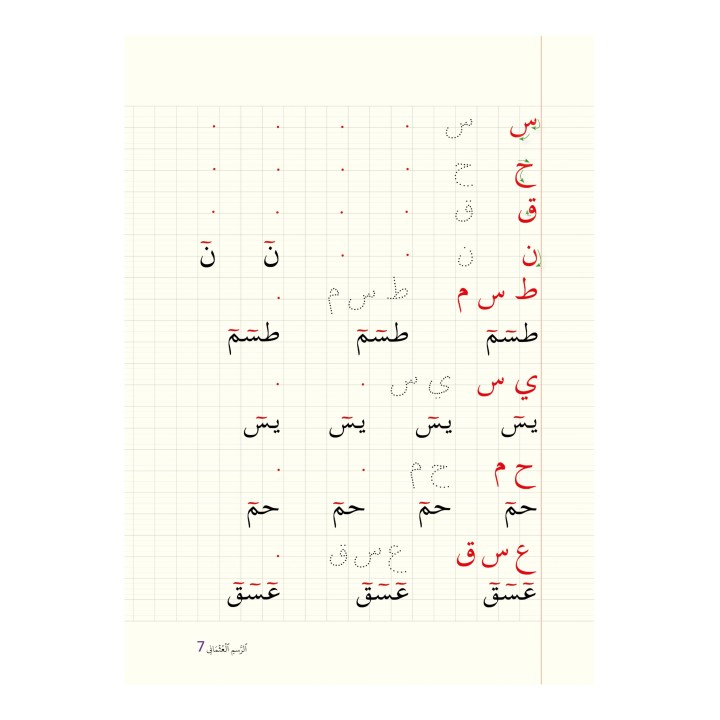 س س
ح ح
ق ق
ن ن نٓ نٓ
ط س م ط س م
طسٓمٓ طسٓمٓ طسٓمٓ
ي س ي س
يسٓ يسٓ يسٓ يسٓ
ح م ح م
حمٓ حمٓ حمٓ حمٓ
ع س ق ع س ق
عٓسٓقٓ عٓسٓقٓ عٓسٓقٓ
الرَّسم العُثمَانى 7